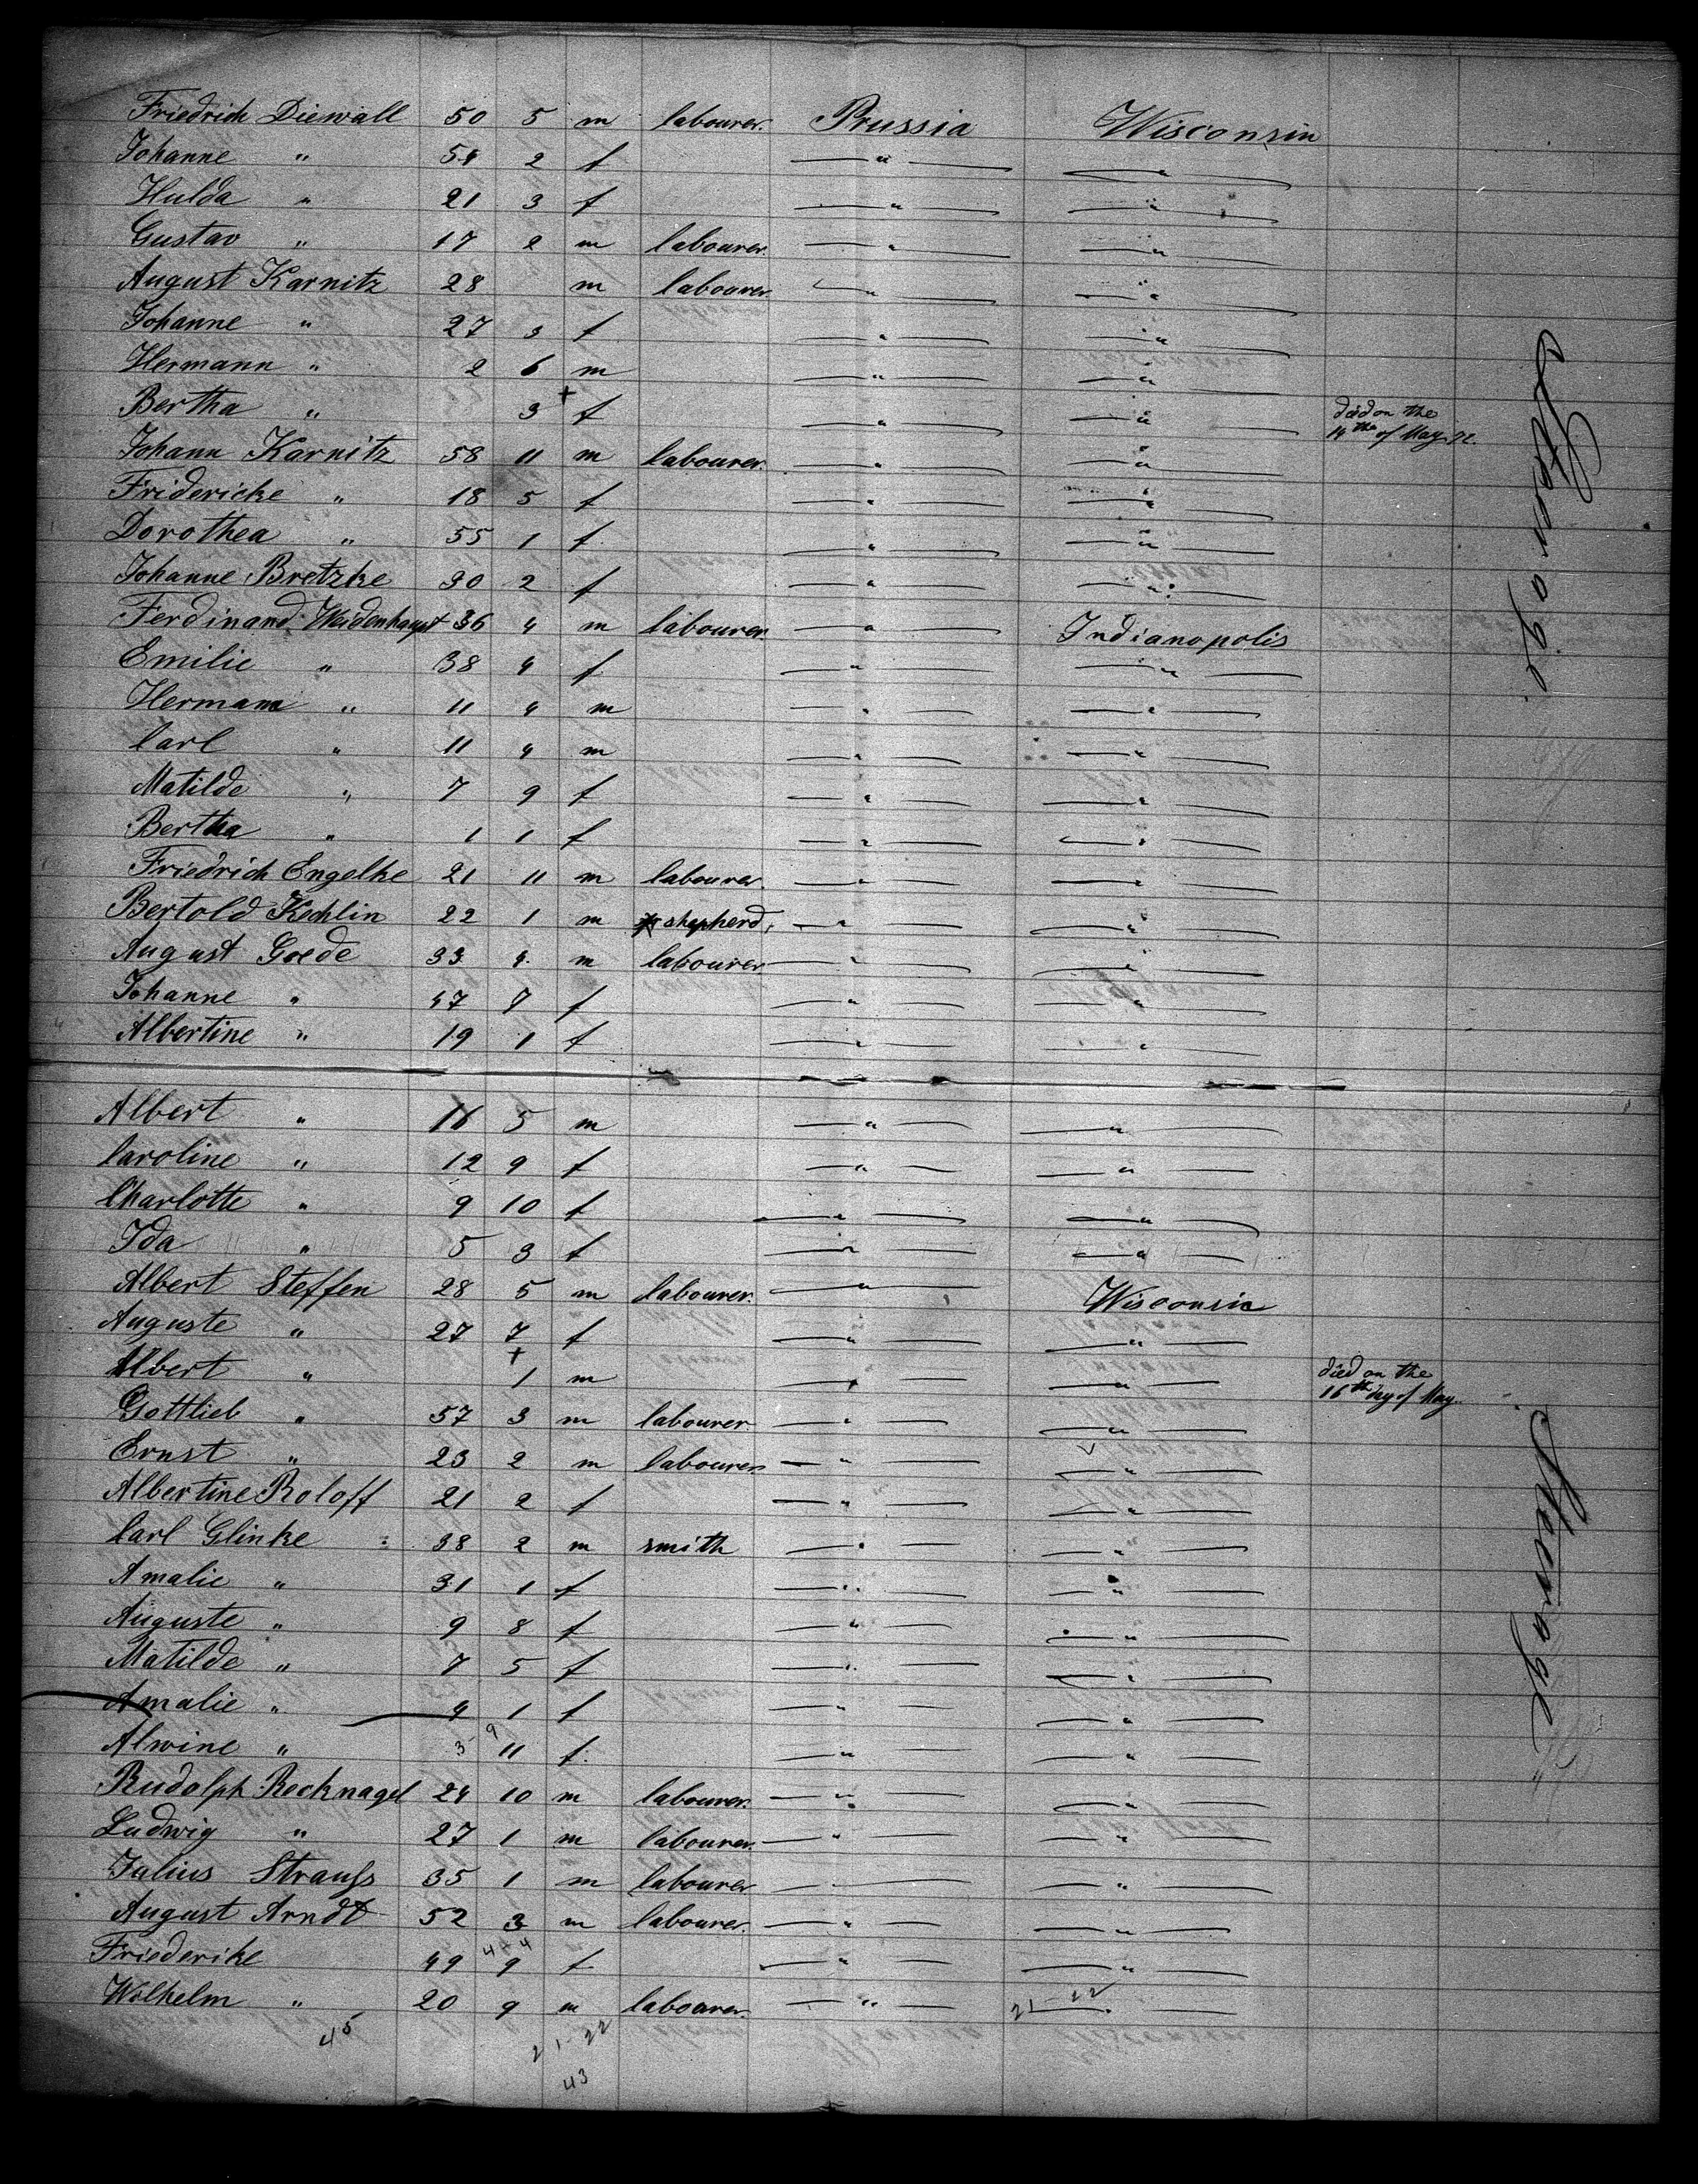 Friedrich Diewall 50 5 m labourer. Prussia Wisconsin
Johanne " 54 2 f " "
Hulda " 21 3 f " "
Gustav " 17 2 m labourer. " "
August Karnitz 28 m labourer " "
Johanne " 27 3 f " "
Hermann " 2 6 m " "
Bertha " 3 + f " " died on the 14th of May
Johann Karnitz 58 11 m labourer. " "
Fridericke " 18 5 f " "
Dorothea " 55 1 f " "
Johanne Bretzke 30 2 f " "
Ferdinand Weidenhaupt 36 4 m labourer. " Indianopolis
Emilie " 38 4 f " "
Hermann " 11 4 m " "
Carl " 11 4 m " "
Matilde " 7 9 f " "
Bertha " 1 1 f " "
Friedrich Engelke 21 11 m labourer. " "
Bertold Kechlin 22 1 m shepherd. " "
August Goede 33 4 m labourer " "
Johanne " 47 7 f " "
Albertine " 19 1 f " "
Steerage.
Albert " 16 5 m " "
Caroline " 12 9 f " "
Charlotte " 9 10 f " "
Ida " 5 3 f " "
Albert Steffen 28 5 m labourer. " Wisconsin
Auguste " 27 7 f " "
Albert " + 1 m " " died on the 16th day of May.
Gottlieb " 57 3 m labourer " "
Ernst " 23 2 m labourer " "
Albertine Roloff 21 2 f " "
Carl Glinke 38 2 m smith " "
Amalie " 31 1 f " "
Auguste " 9 8 f " "
Matilde " 7 5 f " "
Amalie " 4 1 f " "
Alwine " 3 9 11 f. " "
Rudolph Recknagel 24 10 m labourer. " "
Ludwig " 27 1 m labourer. " "
Julius Strauß 35 1 m labourer " "
August Arndt 52 3 m labourer. " "
Friederike 49 9 f " "
Wilhelm " 20 9 m labourer. " "
21-22
45
21-22
43
Steerage